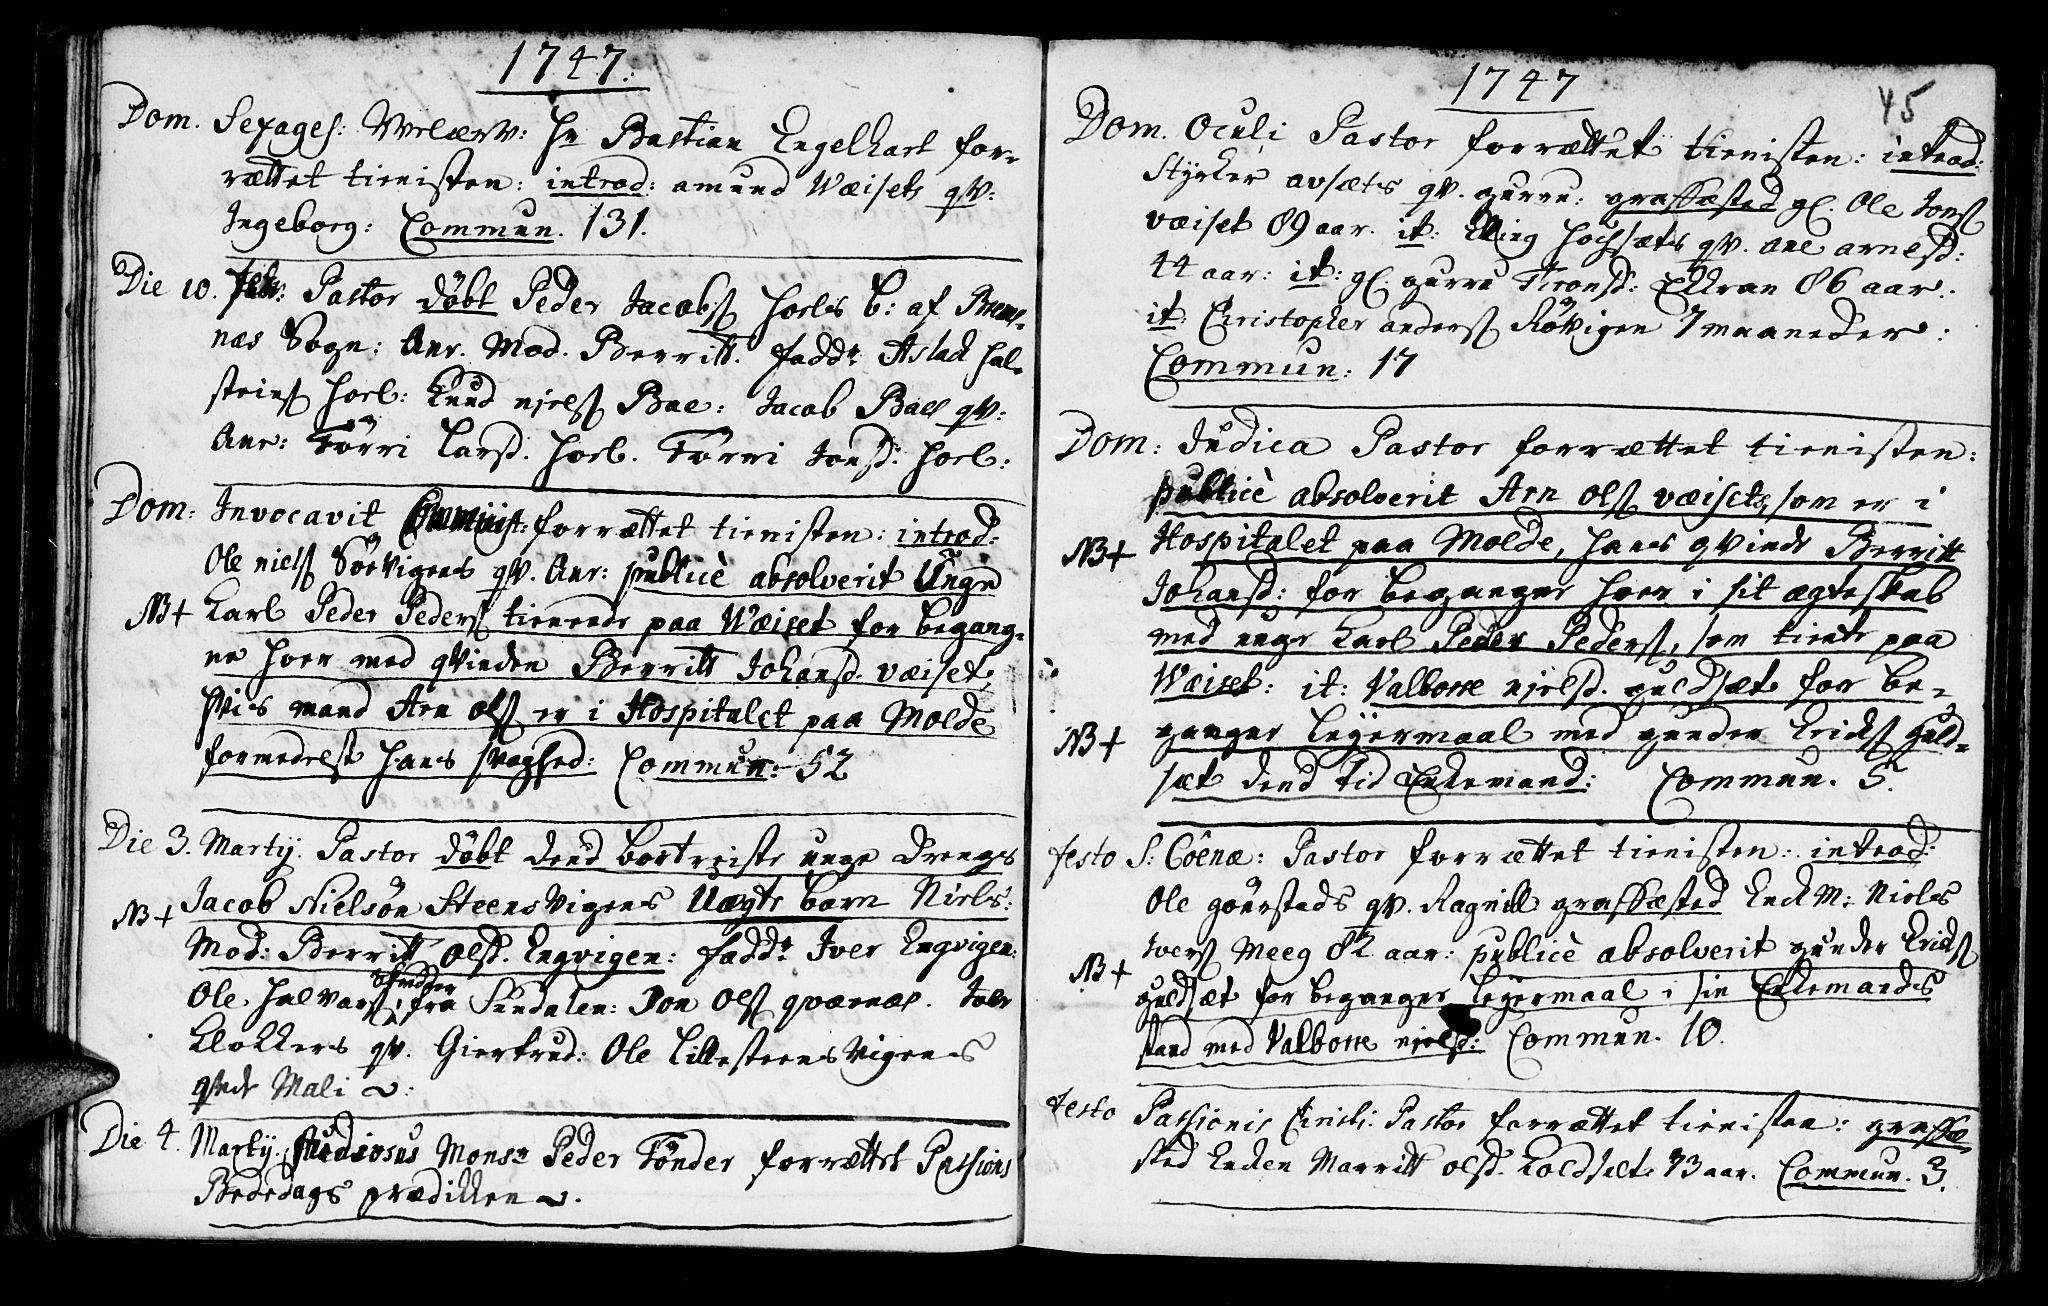 1747.
Dom. Sexages: Velærv: Hr Bastian Engelhart for-
rættet tienisten: introd: amund Wæisets qv:
Ingeborg: Commun. 131.
Die 10. febr: Pastor döbt Peder Jacobs Horls b: af Brem-
næs Sogn: Anr. Mod. Berritt. fadd: Aslack Hal-
steins Horl: Knud njels Bae: Jacob Baes qv:
Anr: Törri Larsd. Horl. Törri Jonsd: Horl:
Dom: Invocavit forrættet tienisten: introd:
Ole niels Sörvigens qv. Anr: publicè absolverit Unge
NB+ Karl Peder Peders tienende paa Wæiset for begang-
ne Hoer med qvinden Berritt Johansd. væiset,
Hvis mand Arn ols er i Hospitalet paa Molde
formedelst Hans svaghed: Commun: 52
Die 3. Martij. Pastor döbt dend bortreiste unge drengs
NB+ Jacob Nielsön Steensvigens Uægte barn Niels:
Mod: Berritt olsd. Engvigen: fadd: Iver Engvigen:
Ole Halvars, fra Sundalen: Jon Ols qværnæs.
Klokkers qv. Giertrud: Ole Lillesteensvigens
qvde Mali
Die 4. Martij. Studiosus Monsr Peder Tönder forrættet Passions
Bededags prædikken
1747
45
Dom. Oculi Pastor forrættet tienisten: introd:
Styrker avsæts qv. gurru: græsfæsted gl. Ole Jons
væiset 89 aar. it: Elling Hochsæts qv. ane arnesd:
44 aar: it: gl. gurru Tronsd: Ekran 86 aar.
it: Christopher anders Rövigen 7 maaneder:
Commun: 17
Dom: Judica Pastor forrættet tienisten:
publicè absolverit Arn ols væisets, som er i
NB+ Hospitalet paa Molde, Hans qvinde Berritt
Johansd: for begangne Hoer i sit ægteskab
med unge Karl Peder Peders, som tiente paa
Wæiset: it: Valborre njelsd. guldsæt for be-
NB+ gangne leyermaal med gunder Ericks guld-
sæt dend tid Enkemand: Commun. 5.
festo S: Cöenæ: Pastor forrættet tienisten: introd:
Ole göurstads qv. Ragnill græsfæsted EnckM: Niels
Ivers Meeg 82 aar: publicè absolverit gunder Ericks
NB+ guldsæt for begangne leyermaal i sin Enkemands
stand med Valborre njelsd: Commun. 10.
festo Passionis Christi: Pastor forrættet tienisten: græsfæ-
sted Enken Marritt olsd. Koldsets 73 aar. Commun. 3.